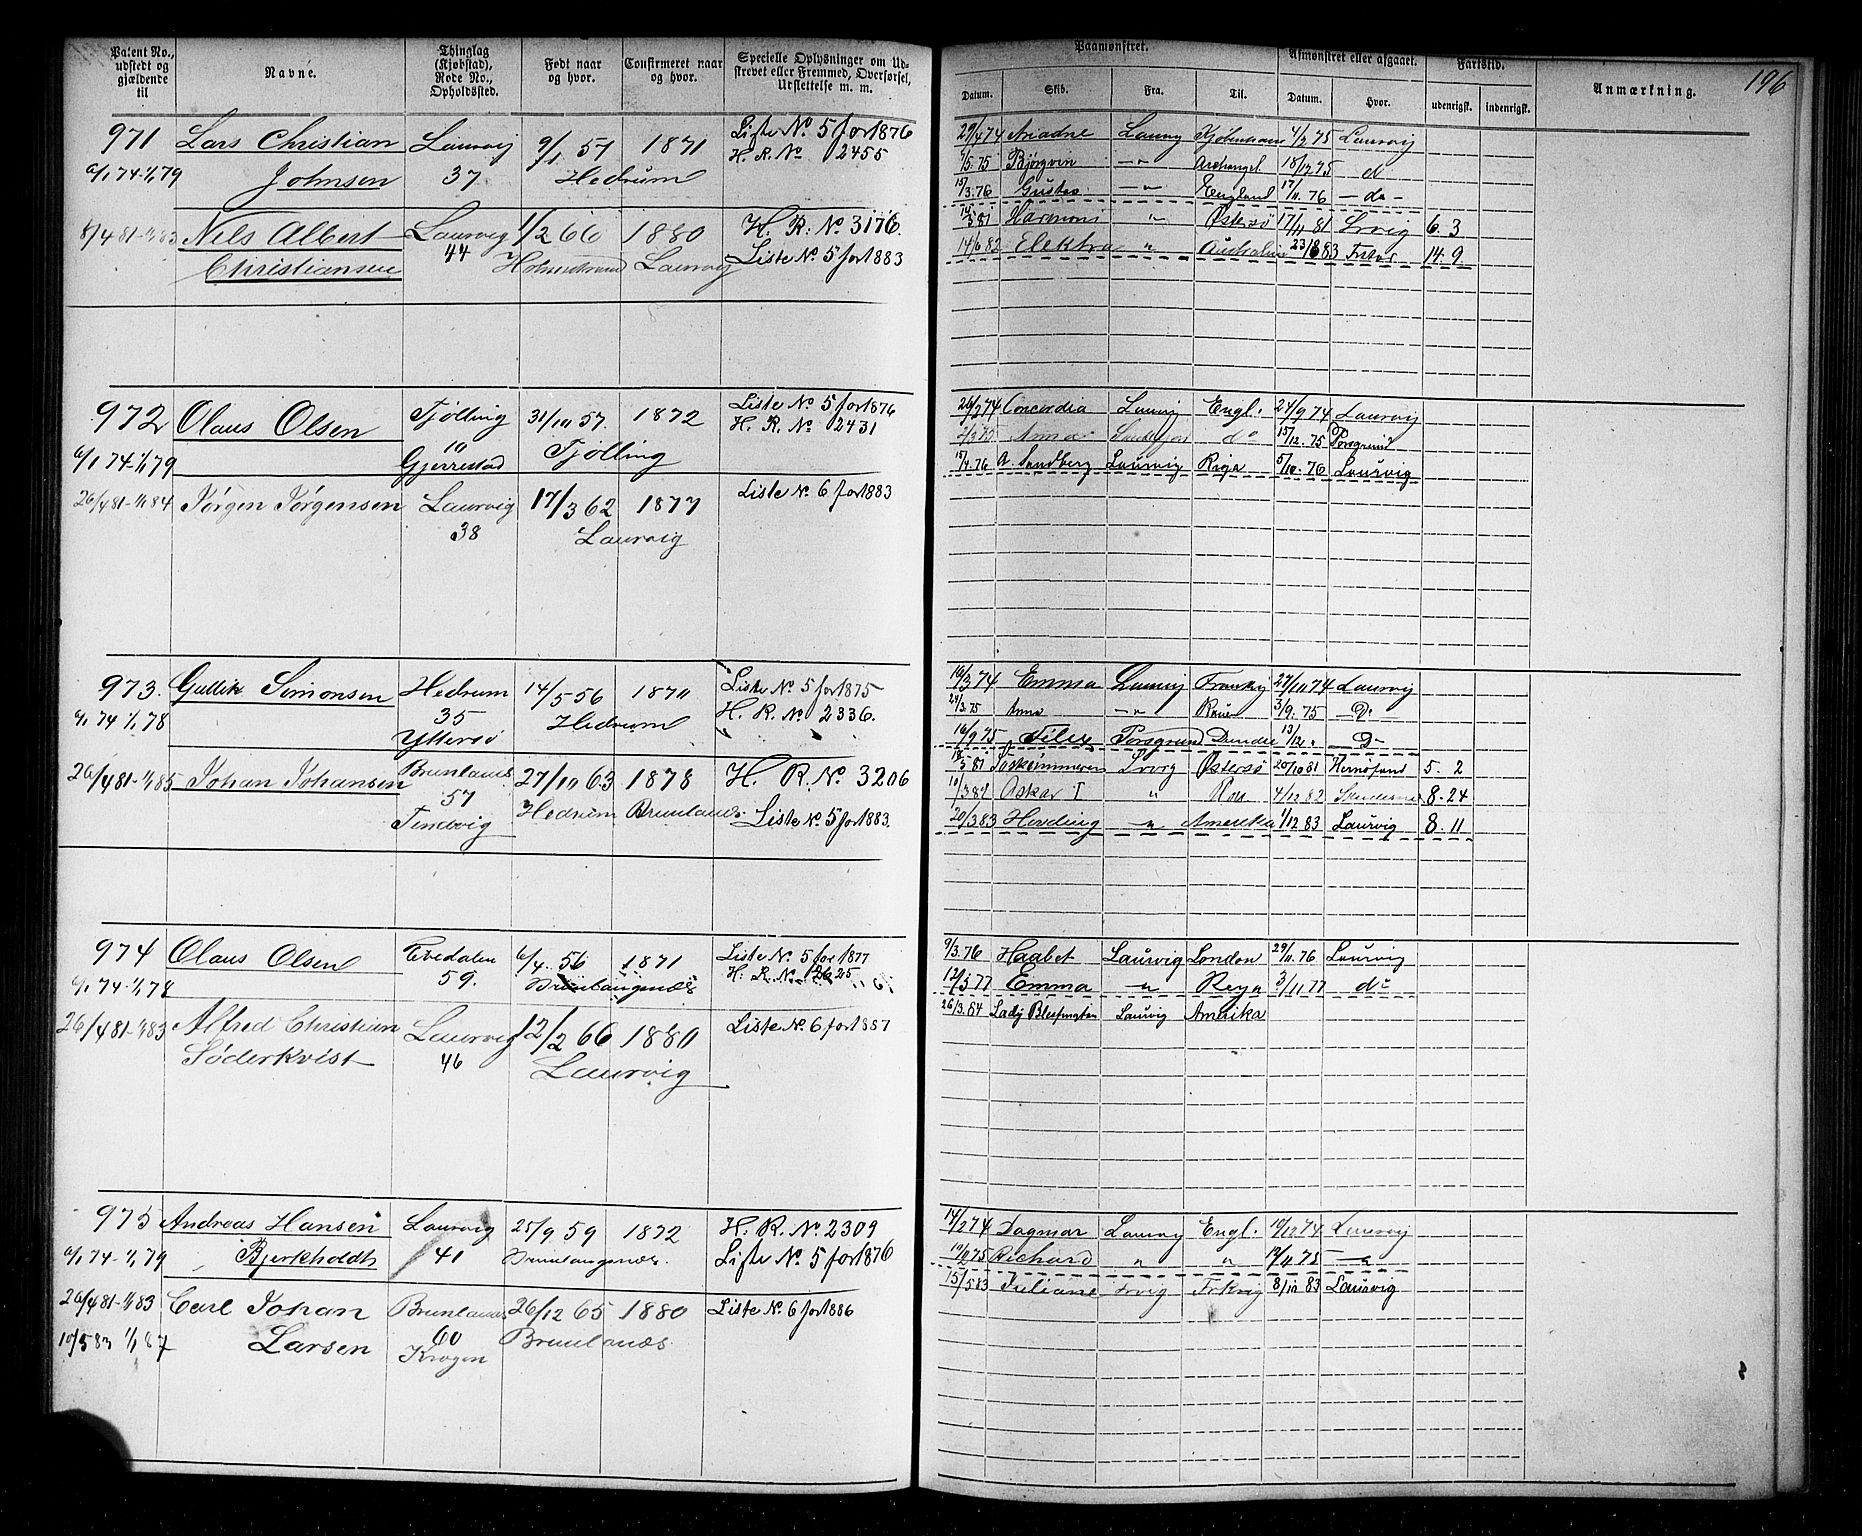 Patent No., udstedt og gjældende til
Navne.
Thinglag (Kjøbstad), Rode No., Opholdssted.
Født naar og hvor.
Confirmeret naar og hvor.
Specielle Oplysninger om Udskrevet eller Fremmed, Overførsel, Udslettelse m. m.
Paamønstret.
Datum. Skib. Fra. Til.
Afmønstret eller afgaaet.
Datum. Hvor.
Fartstid.
udenrigsk. indenrigsk.
Anmærkning.
196
971 Lars Christian Laurvig 9/1 57 1871 Liste No 5 for 1876
H. R. No 2455
6/1 74-1/1 79 Johnsen 37 Hedrum
29/4 74 Ariadne Laurvig Kjøbenhavn 4/2 75 Laurvig
1/5 75 Bjørgvin —"— Archangel 18/12 75 d
15/3 76 Gustav —"— England 17/11 76 —do—
8/4 81-1/1 83 Nils Albert Laurvig 1/2 66 1880 H. R. No 3176.
Christiansen 44 Holmestrand Laurvig Liste No 5 for 1883
Østersø 17/11 81 Lrvig 6. 3
14/6 82 Elektra " Australien 83 14. 9.
972 Olaus Olsen Tjølling 31/10 57. 1872 Liste No 5 for 1876
H. R. No 2431
6/1 74-1/1 79 10 Gjerrestad Tjølling
26/2 74 Concordia Laurvig Engl. 24/9 74 Laurvig
Anna do 15/12 75 Porsgrund
15/4 76 A Sandberg Laurvig Riga 5/10 76 Laurvig
26/4 81-1/1 84 Jørgen Jørgensen Laurvig 17/3 62 1877 Liste No 6 for 1883
38 Laurvig
973. Gullik Simonsen Hedrum 14/5 56 1870 Liste No 5 for 1875
6/1 74 1/1 78 35 Hedrum H. R. No 2336.
Yttersø
19/3 74 Emma Laurvig 27/11 74 Laurvig
24/3 75 Anna —"— Rouen 3/9. 75 —Do—
16/9 75 Felix Porsgrund Dundee 13/12 " —D—
26/4 81-1/1 85 Johan Johansen Brunlanes 27/10 63 1878 H. R. No 3206
57 Hedrum Brunlanæs Liste No 5 for 1883.
Tindvig
Lrvig Østersø 20/10 81 Hernøsand 5. 2
Oskar I " 4/12 82 8. 24
20/3 83 Høvding —"— Amerika 1/12 83 Laurvig 8. 11
974 Olaus Olsen Kvedalen 6/4. 56 1871 Liste No 5 for 1877
6/1 74-1/1 78 59. Brunlaugenæs H. R. No 2625
9/3. 76 Haabet Laurvig London 29/11. 76 Laurvig
12/5 77 Emma —"— Reya 3/11 77 do
26/4 81-1/1 83 Alfred Christian Laurvig 12/2 66 1880 Liste No 6 for 1887
Søderkvist 46 Laurvig
26/3. 84 Lady Blessington Laurvig Amerika
975 Andreas Hansen Laurvig 25/9 59 1872 H. R. No 2309
6/1 74-1/1 79 Bjerkholdt 41 Brunlaugenæs. Liste No 5 for 1876
14/2 74 Dagmar Laurvig Engl. 10/12 74 Laurvig
Richard " " 75 —"—
26/4 81-1/1 83 Carl Johan Brunlanæs 26/12 65 1880 Liste No 6 for 1886
10/5 83 1/1 87 Larsen 60 Krogen Brunlanæs
15/5 83 Juliane Lrvig 8/10 83 Laurvig